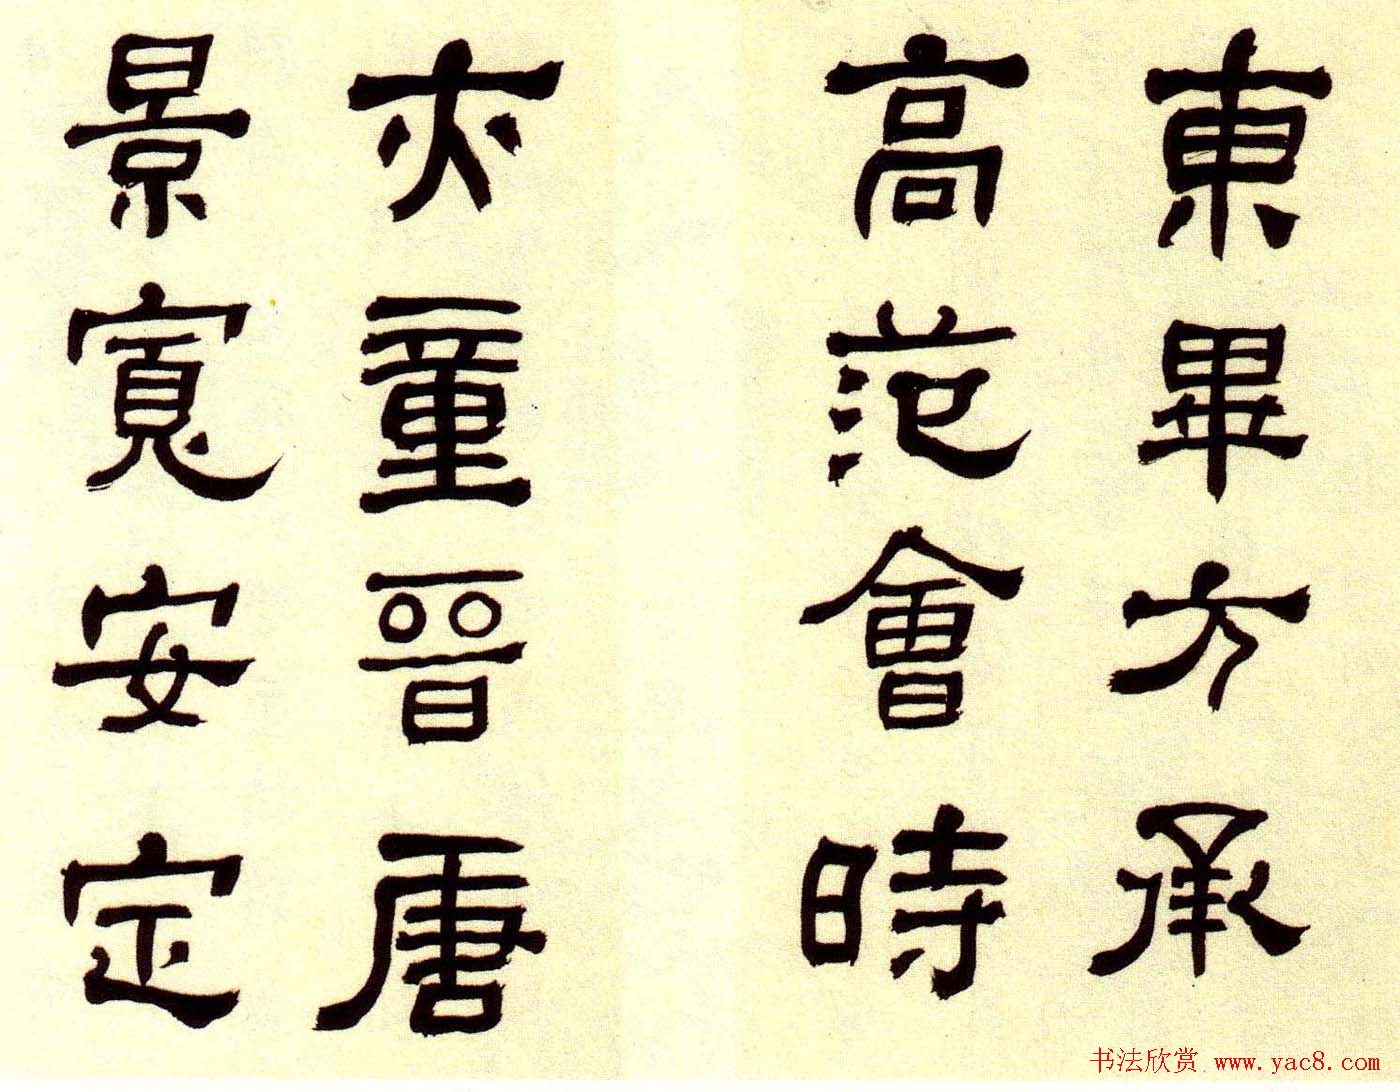 東畢方承
高范會時
亦童晉唐
景寬安定
书法欣赏 www.yac8.com